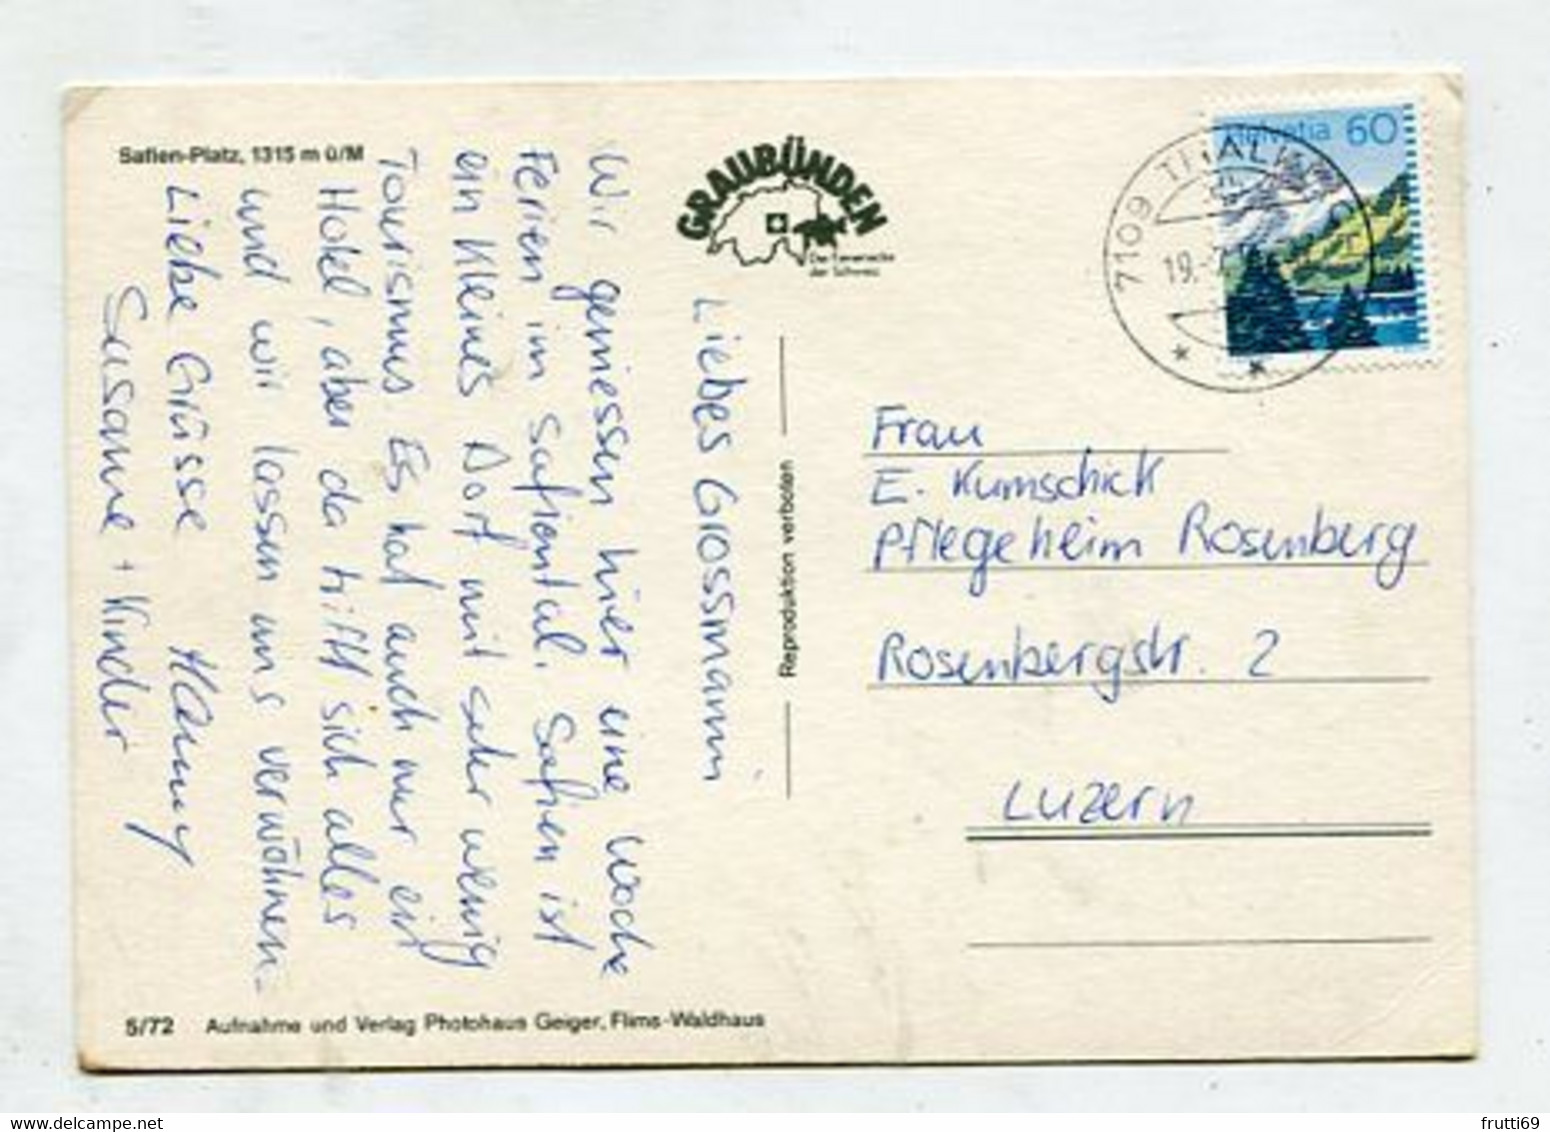 Safien-Platz, 1315 m ü/M
GRAUBÜNDEN
Die Ferienecke
der Schweiz
Liebes Grossmami
Wir geniessen hier eine Woche
Ferien im Safiental. Safien ist
ein kleines Dorf mit sehr wenig
Tourismus. Es hat auch nur ein
Hotel, aber da trifft sich alles
und wir lassen uns verwöhnen.
Liebe Grüsse
Susanne + Kinder
Reproduktion verboten
5/72 Aufnahme und Verlag Photohaus Geiger, Flims-Waldhaus
Helvetia 60
7109 THALKIRCH
19.-7.
Frau
E. Kumschick
Pflegeheim Rosenberg
Rosenbergstr. 2
Luzern
frutti69